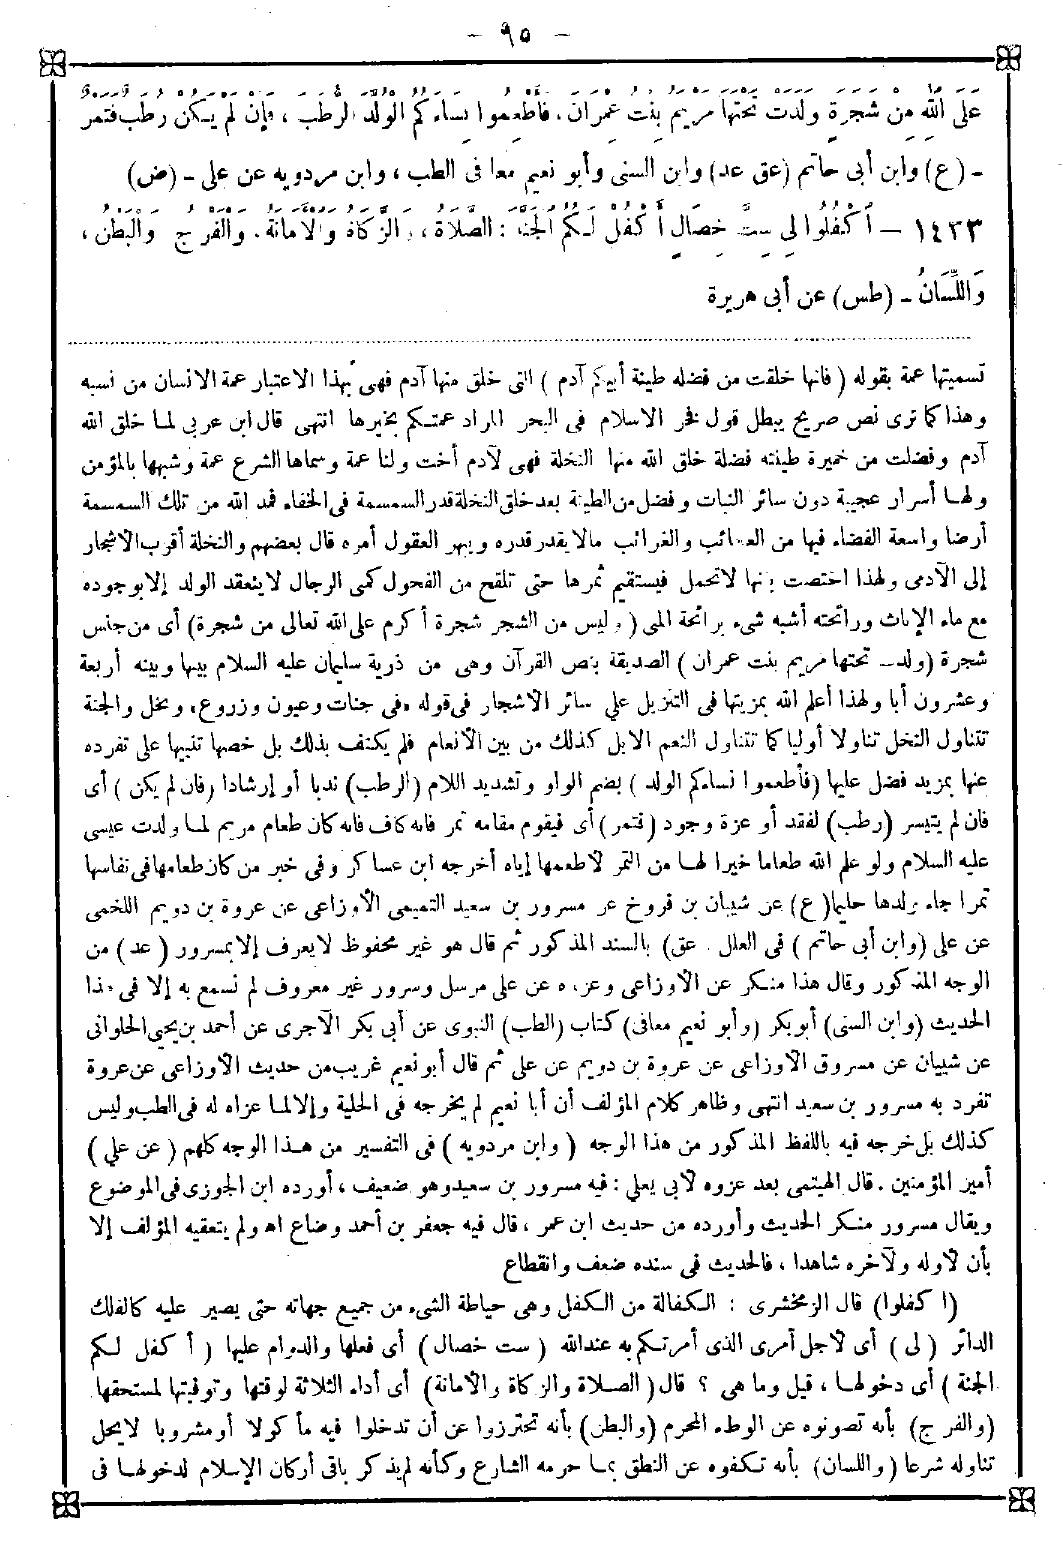 - ٩٥ -
عَلَى اللّٰهِ مِنْ شَجَرَةٍ وَلَدَتْ تَحْتَهَا مَرْيَمُ بِنْتُ عِمْرَانَ، فَأَطْعِمُوا نِسَاءَكُمُ الْوُلَّدَ الرُّطَبَ، فَإِنْ لَمْ يَكُنْ رُطَبٌ فَتَمْرٌ
- (ع) وابن أبى حاتم (عق عد) وابن السنى وأبو نعيم معا فى الطب، وابن مردويه عن على - (ض)
١٤٢٣ - أَكْفُلُوا لِى سِتَّ خِصَالٍ أَكْفُلْ لَكُمُ الْجَنَّةَ: الصَّلَاةُ، وَالزَّكَاةُ وَالْأَمَانَةُ. وَالْفَرْجُ وَالْبَطْنُ،
وَاللِّسَانُ - (طس) عن أبى هريرة
تسميتها عمة بقوله (فانها خلقت من فضله طينة أبيكم آدم) التى خلق منها آدم فهى بهذا الاعتبار عمة الانسان من نسبه
وهذا كما ترى نص صريح يبطل قول فخر الاسلام فى البحر المراد عمتكم بخيرها انتهى قال ابن عربى لما خلق الله
آدم وفضلت من خميرة طينته فضلة خلق الله منها النخلة فهى لآدم أخت ولنا عمة وسماها الشرع عمة وشبهها بالمؤمن
ولها أسرار عجيبة دون سائر النبات وفضل من الطينة بعد خلق النخلة قدر السمسمة فى الخفاء فمد الله من تلك السمسمة
أرضا واسعة الفضاء فيها من العجائب والغرائب مالا يقدر قدره ويبهر العقول أمره قال بعضهم والنخلة أقرب الاشجار
إلى الآدمى ولهذا اختصت بأنها لا تحمل فيستقيم ثمرها حتى تلقح من الفحول كمى الرجال لا ينعقد الولد إلا بوجوده
مع ماء الإناث ورائحته أشبه شىء برائحة المى (وليس من الشجر شجرة أكرم على الله تعالى من شجرة) أى من جنس
شجرة (ولدت تحتها مريم بنت عمران) الصديقة بنص القرآن وهى من ذرية سليمان عليه السلام بينها وبينه أربعة
وعشرون أبا ولهذا أعلم الله بمزيتها فى التنزيل على سائر الاشجار فى قوله «فى جنات وعيون وزروع، ونخل والجنة
تتناول النخل تناولا أوليا كما تتناول النعم الابل كذلك من بين الأنعام فلم يكتف بذلك بل خصها تنبيها على تفرده
عنها بمزيد فضل عليها (فأطعموا نساءكم الولد) بضم الواو وتشديد اللام (الرطب) ندبا أو إرشادا (فان لم يكن) أى
فان لم يتيسر (رطب) لفقد أو عزة وجود (فتمر) أى فيقوم مقامه تمر فانه كاف فانه كان طعام مريم لما ولدت عيسى
عليه السلام ولو علم الله طعاما خيرا لها من التمر لاطعمها إياه أخرجه ابن عساكر وفى خبر من كان طعامها فى نفاسها
تمرا جاء ولدها حليما (ع) عن شيبان بن فروخ عن مسرور بن سعيد التميمى الأوزاعى عن عروة بن دويم اللخمى
عن على (وابن أبى حاتم) فى العلل. عق) بالسند المذكور ثم قال هو غير محفوظ لا يعرف إلا بمسرور (عد) من
الوجه المذكور وقال هذا منكر عن الاوزاعى وعروه عن على مرسل وسرور غير معروف لم نسمع به إلا فى هذا
الحديث (وابن السنى) أبو بكر (وأبو نعيم معافى) كتاب (الطب) النبوى عن أبى بكر الآجرى عن أحمد بن يحيى الحلوانى
عن شيبان عن مسروق الأوزاعى عن عروة بن دويم عن على ثم قال أبو نعيم غريب من حديث الأوزاعى عن عروة
تفرد به مسرور بن سعيد انتهى وظاهر كلام المؤلف أن أبا نعيم لم يخرجه فى الحلية وإلا لما عزاه له فى الطب وليس
كذلك بل خرجه فيه باللفظ المذكور من هذا الوجه (وابن مردويه) فى التفسير من هذا الوجه كلهم (عن علي)
أمير المؤمنين. قال الهيتمى بعد عزوه لأبى يعلي: فيه مسرور بن سعيد وهو ضعيف، أورده ابن الجوزى فى الموضوع
ويقال مسرور منكر الحديث وأورده من حديث ابن عمر، قال فيه جعفر بن أحمد وضاع اه ولم يتعقبه المؤلف إلا
بأن لاوله ولآخره شاهدا، فالحديث فى سنده ضعف وانقطاع
(اكفلوا) قال الزمخشرى: الكفالة من الكفل وهى حياطة الشىء من جميع جهاته حتى يصير عليه كالفلك
الدائر (لى) أى لاجل أمرى الذى أمرتكم به عند الله (ست خصال) أى فعلها والدوام عليها (أكفل لكم
الجنة) أى دخولها، قيل وما هى؟ قال (الصلاة والزكاة والأمانة) أى أداء الثلاثة لوقتها وتوفيتها لمستحقها
(والفرج) بأنه تصونوه عن الوطء المحرم (والبطن) بأنه تحترزوا عن أن تدخلوا فيه مأكولا أو مشروبا لا يحل
تناوله شرعا (واللسان) بأنه تكفوه عن النطق بما حرمه الشارع وكأنه لم يذكر باقى أركان الإسلام لدخولها فى